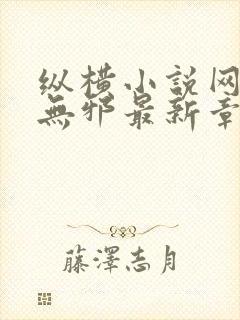 纵横小説网
無邪最新章
藤澤志月